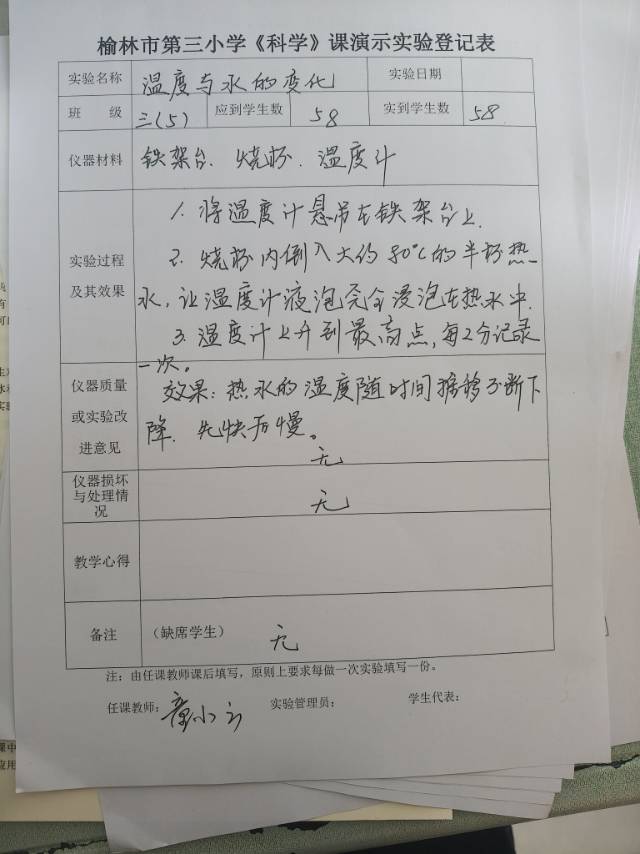 榆林市第三小学《科学》课演示实验登记表
实验名称 温度与水的变化 实验日期
班 级 三(5) 应到学生数 58 实到学生数 58
仪器材料 铁架台、烧杯、温度计
实验过程及其效果
1. 将温度计悬吊在铁架台上.
2. 烧杯内倒入大约80℃的半杯热
水,让温度计液泡完全浸泡在热水中.
3. 温度计上升到最高点,每2分记录
一次。
仪器质量或实验改进意见
效果:热水的温度随时间推移不断下
降.先快后慢。
无
仪器损坏与处理情况 无
教学心得
备注 (缺席学生) 无
注:由任课教师课后填写,原则上要求每做一次实验填写一份。
任课教师: 小 实验管理员: 学生代表:
课中
应用